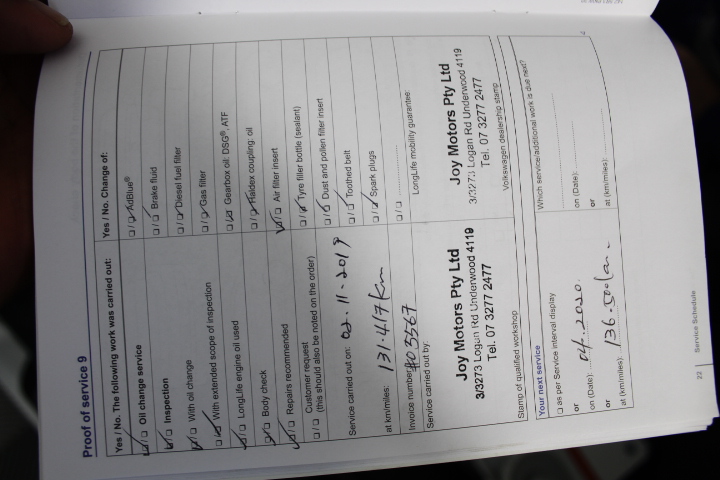 Proof of service 9
Yes / No. The following work was carried out:
Oil change service
Inspection
With oil change
With extended scope of inspection
LongLife engine oil used
Body check
Repairs recommended
Customer request
(this should also be noted on the order)
Service carried out on: 02.11.2019
at km/miles: 131.417 km
Invoice number:
Service carried out by:
Joy Motors Pty Ltd
3/3273 Logan Rd Underwood 4119
Tel. 07 3277 2477
Stamp of qualified workshop
Yes / No. Change of:
AdBlue®
Brake fluid
Diesel fuel filter
Gas filter
Gearbox oil: DSG®, ATF
Haldex coupling: oil
Air filter insert
Tyre filler bottle (sealant)
Dust and pollen filter insert
Toothed belt
Spark plugs
LongLife mobility guarantee:
Joy Motors Pty Ltd
3/3273 Logan Rd Underwood 4119
Tel. 07 3277 2477
Volkswagen dealership stamp
Your next service
as per Service interval display
on (Date): 04.2020.
or
at (km/miles): 136.500
Which service/additional work is due next?
on (Date):
or
at (km/miles):
22 Service Schedule